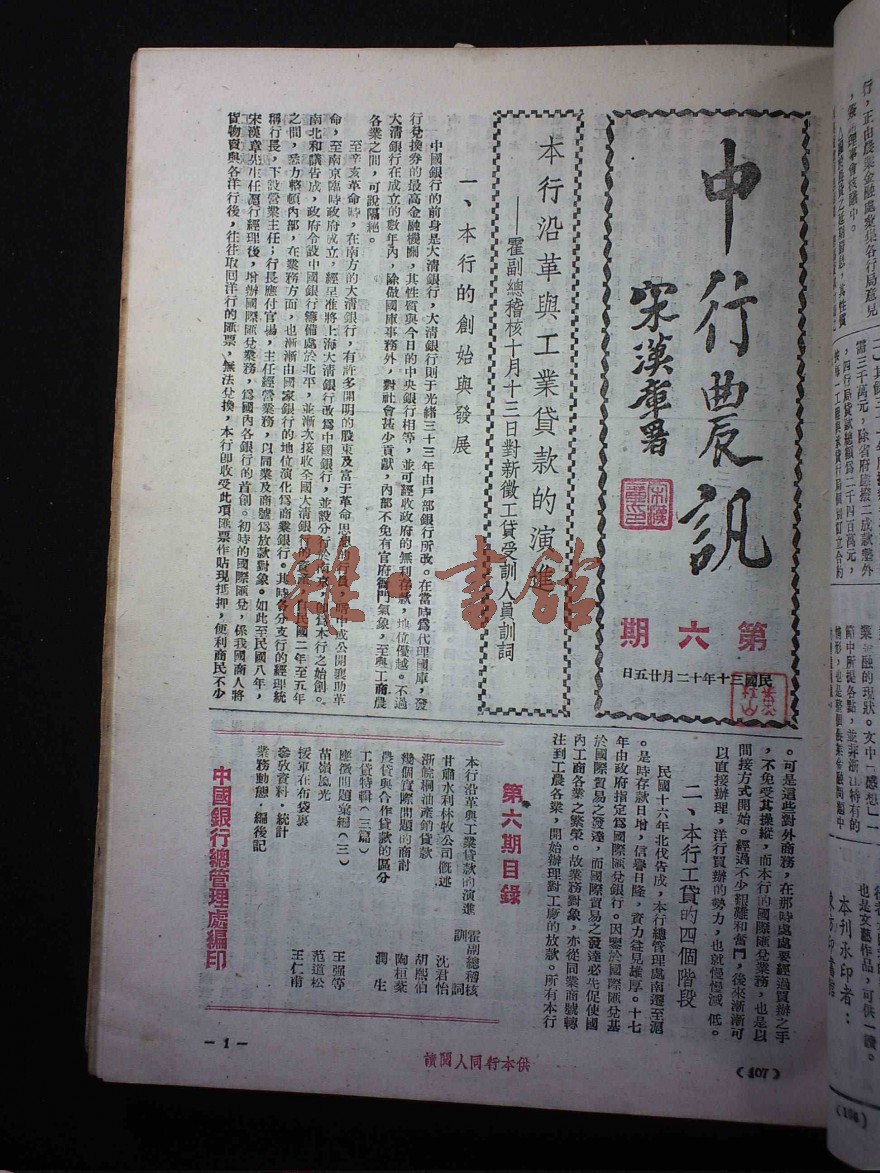 中行農訊
宋漢章署
第六期
民國三十年十二月廿五日
本行沿革與工業貸款的演進
——霍副總稽核十月十三日對新徵工貸受訓人員訓詞
一、本行的創始與發展
中國銀行的前身是大清銀行,大清銀行則于光緒三十三年由戶部銀行所改。在當時爲代理國庫,發
行兌換券的最高金融機關,其性質與今日的中央銀行相等,並可經收政府的無利存款,地位優越。不過
大清銀行在成立的數年內,除做國庫事務外,對社會甚少貢獻,內部不免有官府衙門氣象,至與工商農
各業之間,可說隔絕。
至辛亥革命時,在南方的大清銀行,有許多開明的股東及富于革命思想的行員,暗中或公開襄助革
命,至南京臨時政府成立,經呈准將上海大清銀行改爲中國銀行,並設分行於南京,即爲本行之始創。
南北和議告成,政府令設中國銀行籌備處於北平,並漸次接收全國大清銀行的資產。自民國二年至五年
之間,悉力整頓內部,在業務方面,也漸漸由國家銀行的地位演化爲商業銀行。其時各分支行的經理統
稱行長,下設營業主任;行長應付官場,主任經營業務,以同業及商號爲放款對象。如此至民國八年,
宋漢章先生任滬行經理後,增辦國際匯兌業務,爲國內各銀行的首創。初時的國際匯兌,係我國商人將
貨物賣與各洋行後,往往取回洋行的匯票,無法兌換,本行卽收受此項匯票作貼現抵押,便利商民不少
。可是這些對外商務,在那時處處要經過買辦之手
,不免受其操縱,而本行的國際匯兌業務,也是以
間接方式開始。經過不少艱難和奮鬥,後來漸漸可
以直接辦理,洋行買辦的勢力,也就慢慢減低。
二、本行工貸的四個階段
民國十六年北伐告成,本行總管理處南遷至滬
。是時存款日增,信譽日隆,資力益見雄厚。十七
年由政府指定爲國際匯兌銀行。因鑒於國際匯兌基
於國際貿易之發達,而國際貿易之發達必先促使國
內工商各業之繁榮。故業務對象,亦從同業商號轉
注到工農各業,開始辦理對工廠的放款。所有本行
第六期目錄
本行沿革與工業貸款的演進 霍副總稽核訓詞
甘肅水利林牧公司概述 沈君怡
浙皖桐油產銷貸款 胡熙伯
幾個實際問題的商討 陶桓棻
農貸與合作貸款的區分 潤生
工貸特輯(三篇)
應徵問題彙編(三) 王强等
苗嶺風光 范道松
援軍在布袋裏 王仁甫
參攷資料·統計
業務動態·編後記
中國銀行總管理處編印
供本行同人閱讀
— 1 —
(407)